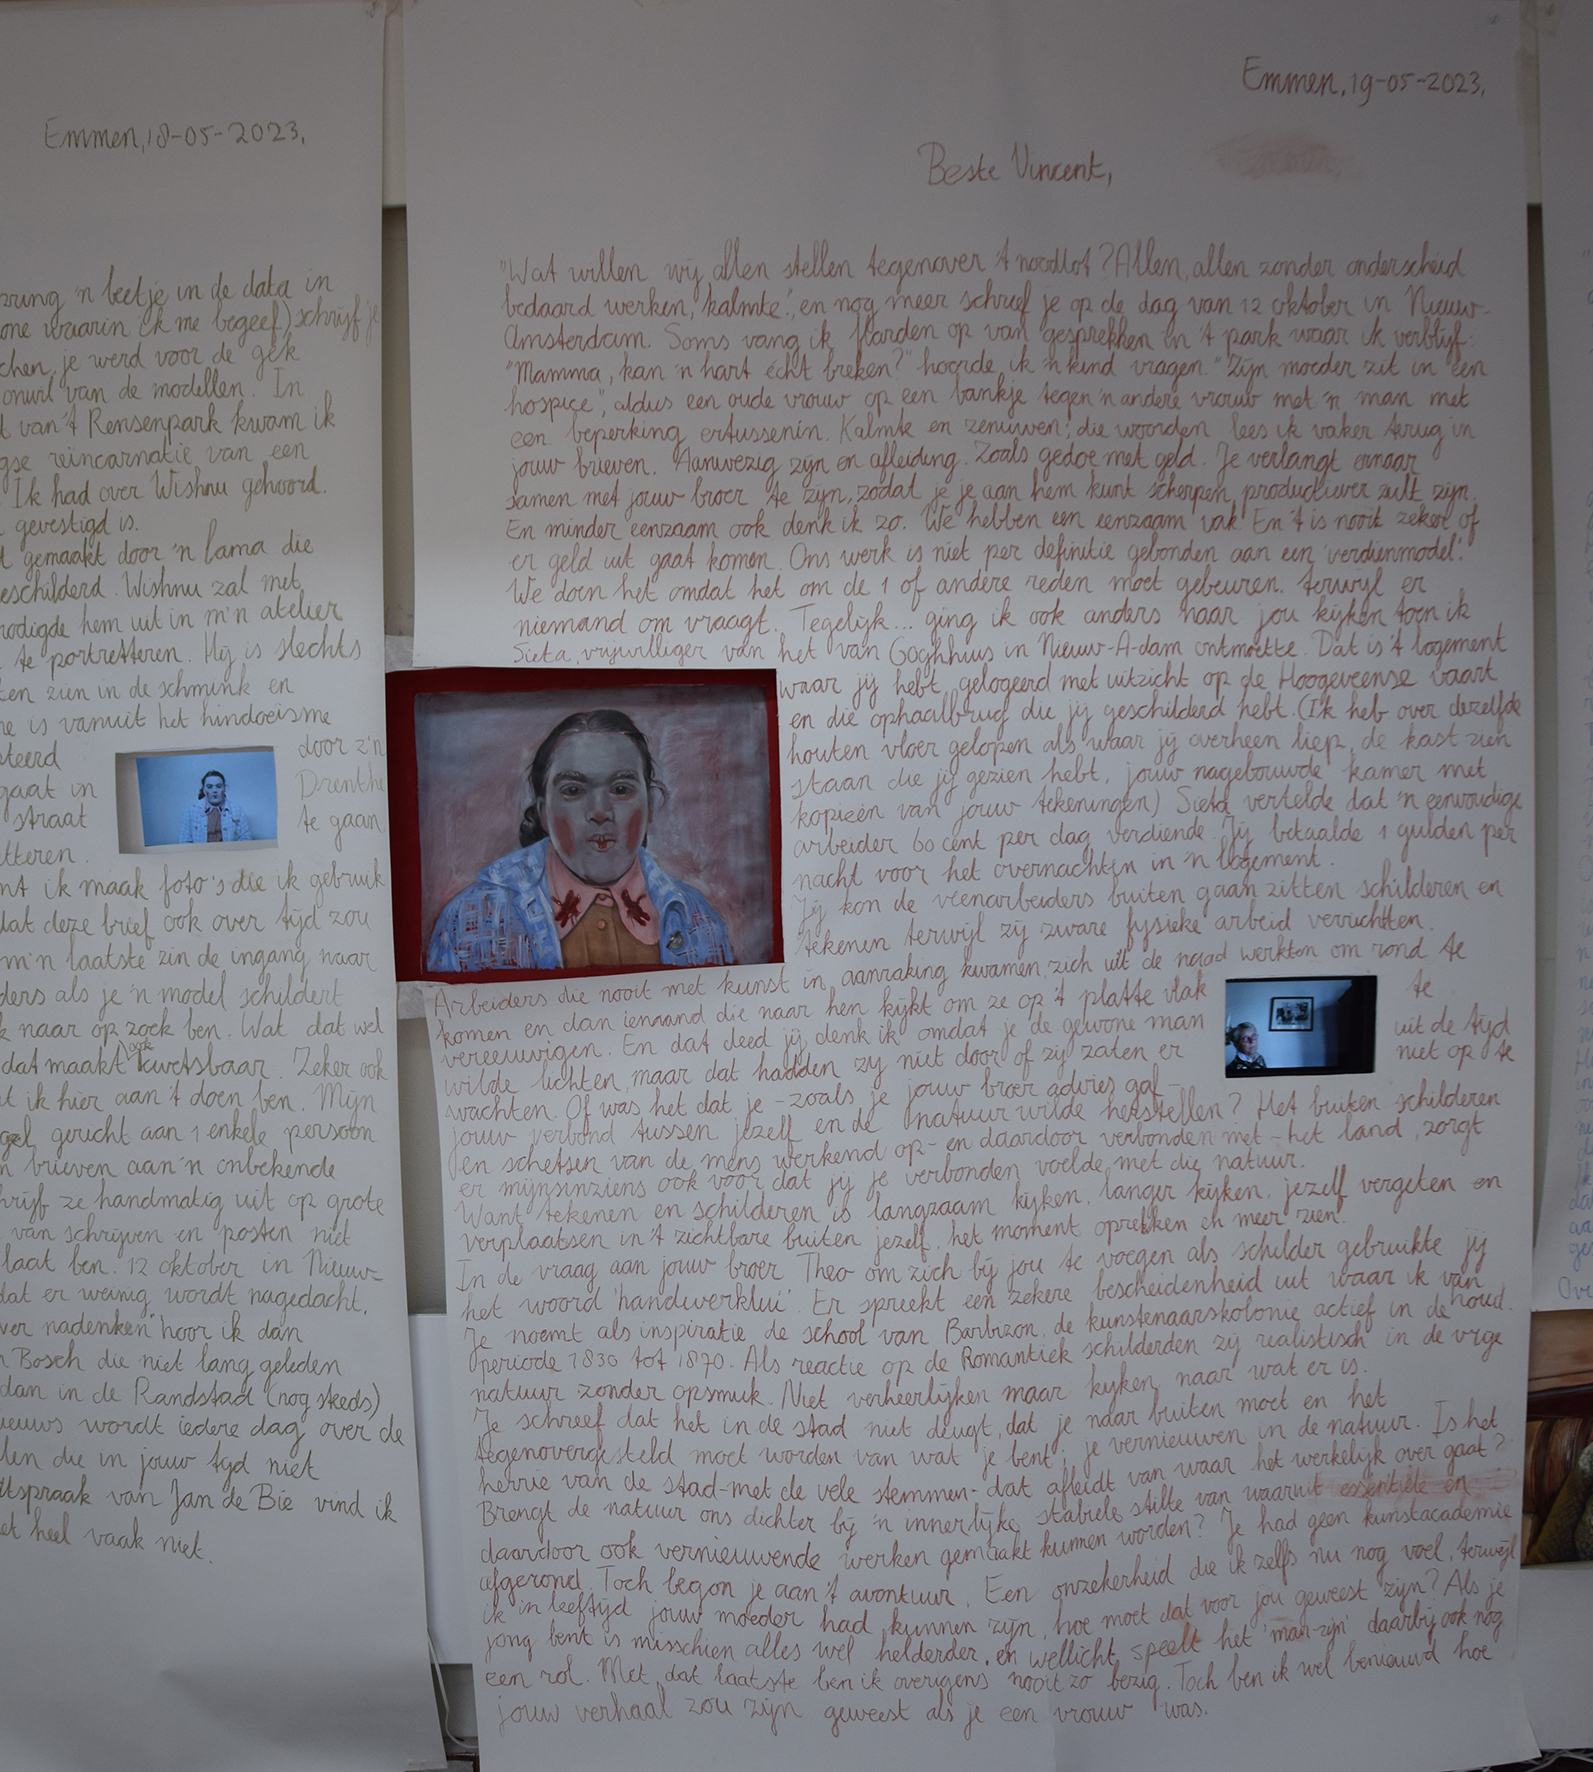 Emmen, 18-05-2023.
'n beetje in de data in
waarin ik me begeef) schrijf je
je werd voor de gek
onwil van de modellen. In
van 't Rensenpark kwam ik
reïncarnatie van een
Ik had over Wishnu gehoord.
gevestigd is.
gemaakt door 'n lama die
Wishnu zal met
hem uit in m'n atelier
te portretteren. Hij is slechts
zien in de schmink en
is vanuit het hindoeïsme
door z'n
gaat in Drenthe
straat te gaan
ik maak foto's die ik gebruik
dat deze brief ook over tijd zou
m'n laatste zin de ingang naar
als je 'n model schildert
naar op zoek ben. Wat dat wel
dat maakt ook kwetsbaar. Zeker ook
ik hier aan 't doen ben. Mijn
gericht aan 1 enkele persoon
brieven aan 'n onbekende
ze handmatig uit op grote
van schrijven en posten niet
laat ben. 12 oktober in Nieuw-
dat er weinig wordt nagedacht.
nadenken" hoor ik dan
Bosch die niet lang geleden
dan in de Randstad (nog steeds)
wordt iedere dag over de
die in jouw tijd niet
van Jan de Bie vind ik
heel vaak niet.
Emmen, 19-05-2023.
Beste Vincent,
"Wat willen wij allen stellen tegenover 't noodlot? Allen, allen zonder onderscheid
bedaard werken, kalmte.", en nog meer schreef je op de dag van 12 oktober in Nieuw-
Amsterdam. Soms vang ik flarden op van gesprekken in 't park waar ik verblijf:
"Mamma, kan 'n hart écht breken?" hoorde ik 'n kind vragen. "Zijn moeder zit in een
hospice", aldus een oude vrouw op een bankje tegen 'n andere vrouw met 'n man met
een beperking ertussenin. Kalmte en zenuwen; die woorden lees ik vaker terug in
jouw brieven. Aanwezig zijn en afleiding. Zoals gedoe met geld. Je verlangt ernaar
samen met jouw broer te zijn, zodat je je aan hem kunt scherpen, productiever zult zijn.
En minder eenzaam ook denk ik zo. We hebben een eenzaam vak. En 't is nooit zeker of
er geld uit gaat komen. Ons werk is niet per definitie gebonden aan een 'verdienmodel'.
We doen het omdat het om de 1 of andere reden moet gebeuren. terwijl er
niemand om vraagt. Tegelijk... ging ik ook anders naar jou kijken toen ik
Sieta, vrijwilliger van het van Goghhuis in Nieuw-A-dam ontmoette. Dat is 't logement
waar jij hebt gelogeerd met uitzicht op de Hoogeveense vaart
en die ophaalbrug die jij geschilderd hebt. (Ik heb over dezelfde
houten vloer gelopen als waar jij overheen liep, de kast zien
staan die jij gezien hebt, jouw nagebouwde kamer met
kopieën van jouw tekeningen) Sieta vertelde dat 'n eenvoudige
arbeider 60 cent per dag verdiende. Jij betaalde 1 gulden per
nacht voor het overnachten in 'n logement.
Jij kon de veenarbeiders buiten gaan zitten schilderen en
tekenen terwijl zij zware fysieke arbeid verrichtten.
Arbeiders die nooit met kunst in aanraking kwamen, zich uit de naad werkten om rond te
komen en dan iemand die naar hen kijkt om ze op 't platte vlak te
vereeuwigen. En dat deed jij denk ik omdat je de gewone man uit de tijd
wilde lichten, maar dat hadden zij niet door of zij zaten er niet op te
wachten. Of was het dat je - zoals je jouw broer advies gaf -
jouw verbond tussen jezelf en de natuur wilde herstellen? Het buiten schilderen
en schetsen van de mens werkend op - en daardoor verbonden met - het land, zorgt
er mijnsinziens ook voor dat jij je verbonden voelde met die natuur.
Want tekenen en schilderen is langzaam kijken, langer kijken, jezelf vergeten en
verplaatsen in 't zichtbare buiten jezelf, het moment oprekken en meer zien.
In de vraag aan jouw broer Theo om zich bij jou te voegen als schilder gebruikte jij
het woord 'handwerklui'. Er spreekt een zekere bescheidenheid uit waar ik van houd.
Je noemt als inspiratie de school van Barbizon, de kunstenaarskolonie actief in de
periode 1830 tot 1870. Als reactie op de Romantiek schilderden zij realistisch in de vrije
natuur zonder opsmuk. Niet verheerlijken maar kijken naar wat er is.
Je schreef dat het in de stad niet deugt, dat je naar buiten moet en het
tegenovergesteld moet worden van wat je bent; je vernieuwen in de natuur. Is het
herrie van de stad - met de vele stemmen - dat afleidt van waar het werkelijk over gaat?
Brengt de natuur ons dichter bij 'n innerlijke, stabiele stilte van waaruit essentiële en
daardoor ook vernieuwende werken gemaakt kunnen worden? Je had geen kunstacademie
afgerond. Toch begon je aan 't avontuur. Een onzekerheid die ik zelfs nu nog voel, terwijl
ik in leeftijd jouw moeder had kunnen zijn, hoe moet dat voor jou geweest zijn? Als je
jong bent is misschien alles wel helderder, en wellicht speelt het 'man-zijn' daarbij ook nog
een rol. Met dat laatste ben ik overigens nooit zo bezig. Toch ben ik wel benieuwd hoe
jouw verhaal zou zijn geweest als je een vrouw was.